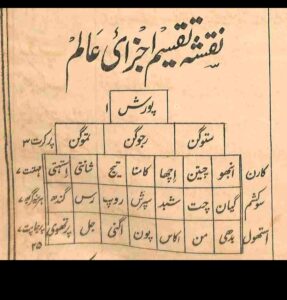 نقشہ تقسیم اجزائ عالم
پورش ۱
ستوگن رجوگن تموگن پرکرت ۳
کارن انبھو چیتن اچھا کامنا تیج شانتی
سوکشم گیان چت شبد سپرش روپ رس گندھ
استھول بدھی من اکاس پون اگنی جل پرتھوی
۲۵